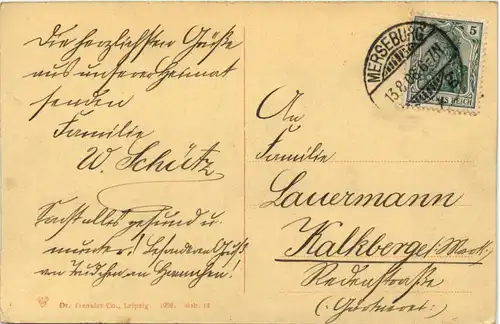 Die herzlichsten Grüße
aus unserer Heimat
senden
Familie
W. Schütz
Sonst alles gesund u.
munter! Besonderen Gruß
an
MERSEBURG
13.8.08.
5
REICH
An
Familie
Lauermann
Kalkberge, Mark.
Redenstraße
(Gärtnerei)
Dr. Trenkler Co., Leipzig. 1908.